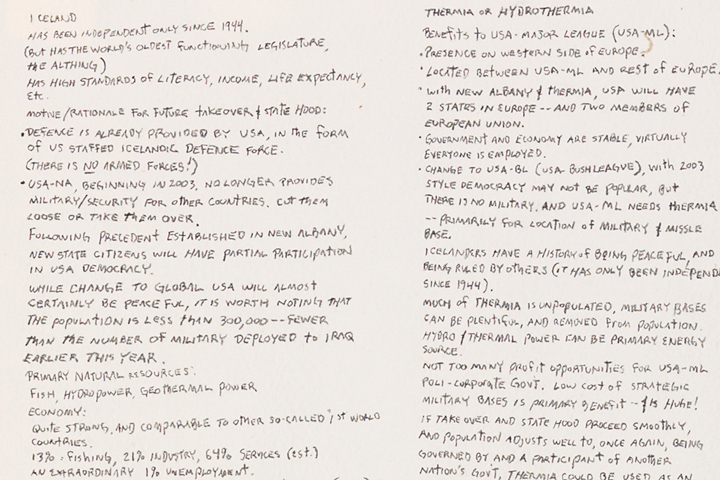 ICELAND
HAS BEEN INDEPENDENT ONLY SINCE 1944.
(BUT HAS THE WORLD'S OLDEST FUNCTIONING LEGISLATURE,
THE ALTHING)
HAS HIGH STANDARDS OF LITERACY, INCOME, LIFE EXPECTANCY,
Etc.
MOTIVE/RATIONALE FOR FUTURE TAKEOVER & STATE HOOD:
• DEFENCE IS ALREADY PROVIDED BY USA, IN THE FORM
OF US STAFFED ICELANDIC DEFENCE FORCE.
(THERE IS NO ARMED FORCES!)
• USA-NA, BEGINNING IN 2003, NO LONGER PROVIDES
MILITARY/SECURITY FOR OTHER COUNTRIES. CUT THEM
LOOSE OR TAKE THEM OVER.
FOLLOWING PRECEDENT ESTABLISHED IN NEW ALBANY,
NEW STATE CITIZENS WILL HAVE PARTIAL PARTICIPATION
IN USA DEMOCRACY.
WHILE CHANGE TO GLOBAL USA WILL ALMOST
CERTAINLY BE PEACEFUL, IT IS WORTH NOTING THAT
THE POPULATION IS LESS THAN 300,000 -- FEWER
THAN THE NUMBER OF MILITARY DEPLOYED TO IRAQ
EARLIER THIS YEAR.
PRIMARY NATURAL RESOURCES:
FISH, HYDROPOWER, GEOTHERMAL POWER
ECONOMY:
QUITE STRONG, AND COMPARABLE TO OTHER SO-CALLED "1ST WORLD
COUNTRIES.
13% = FISHING, 21% INDUSTRY, 64% SERVICES (est.)
AN EXTRAORDINARY 1% UNEMPLOYMENT.
THERMIA OR HYDROTHERMIA
BENEFITS TO USA-MAJOR LEAGUE (USA-ML):
• PRESENCE ON WESTERN SIDE of EUROPE.
• LOCATED BETWEEN USA-ML AND REST of EUROPE.
• WITH NEW ALBANY & THERMIA, USA WILL HAVE
2 STATES IN EUROPE -- AND TWO MEMBERS OF
EUROPEAN UNION.
• GOVERNMENT AND ECONOMY ARE STABLE, VIRTUALLY
EVERYONE IS EMPLOYED.
• CHANGE TO USA-BL (USA BUSH LEAGUE), WITH 2003
STYLE DEMOCRACY MAY NOT BE POPULAR, BUT
THERE IS NO MILITARY. AND USA-ML NEEDS THERMIA
-- PRIMARILY FOR LOCATION OF MILITARY & MISSLE
BASE.
ICELANDERS HAVE A HISTORY of BEING PEACEFUL, AND
BEING RULED BY OTHERS (IT HAS ONLY BEEN INDEPEND
SINCE 1944).
MUCH OF THERMIA IS UNPOPULATED, MILITARY BASES
CAN BE PLENTIFUL, AND REMOVED FROM POPULATION.
HYDRO & THERMAL POWER CAN BE PRIMARY ENERGY
SOURCE.
NOT TOO MANY PROFIT OPPORTUNITIES FOR USA-ML
POLI-CORPORATE GOVT. LOW COST OF STRATEGIC
MILITARY BASES IS PRIMARY BENEFIT -- & IS HUGE!
IF TAKE OVER AND STATE HOOD PROCEED SMOOTHLY,
AND POPULATION ADJUSTS WELL TO, ONCE AGAIN, BEING
GOVERNED BY AND A PARTICIPANT of ANOTHER
NATION'S GOVT, THERMIA COULD BE USED AS AN